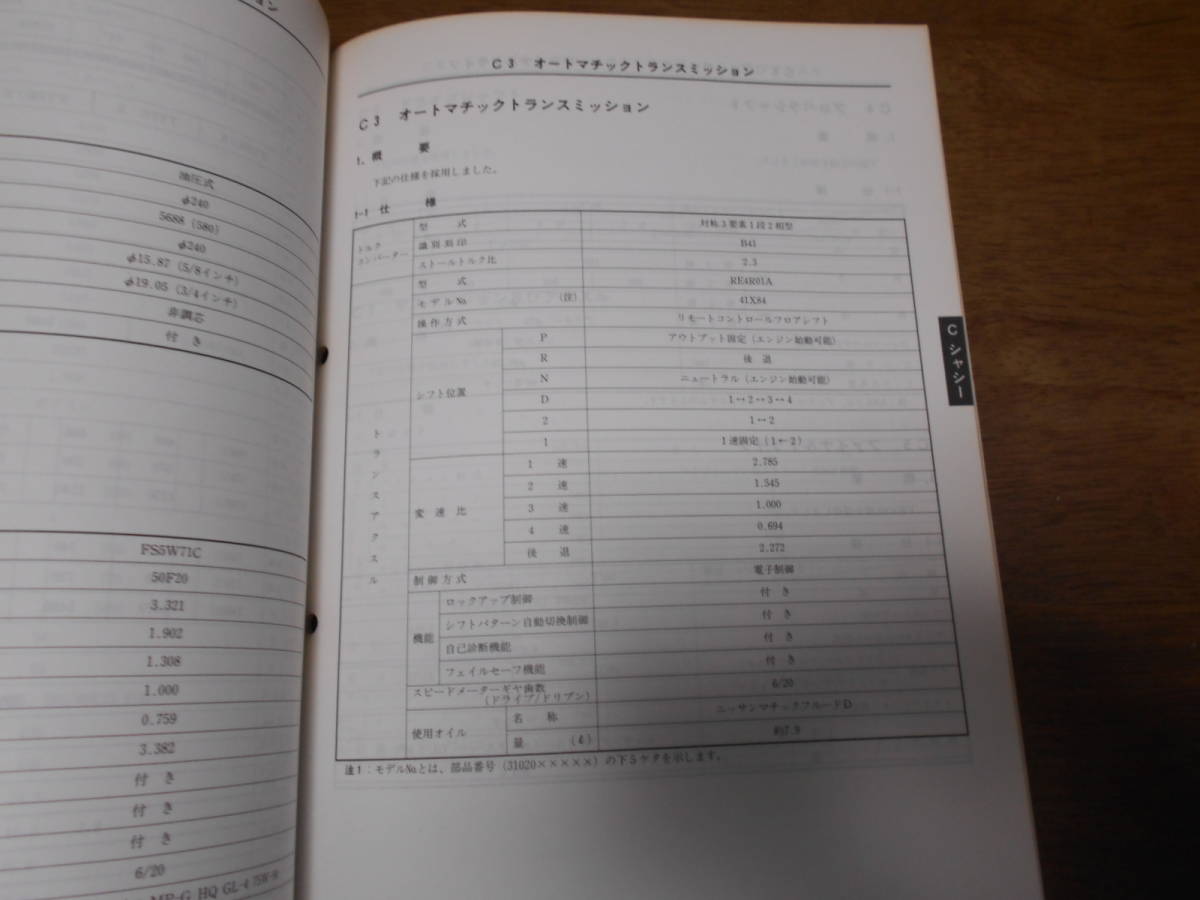 ョン
油圧式
φ240
5688 (580)
φ240
φ15.87 (5/8インチ)
φ19.05 (3/4インチ)
非調芯
付 き
FS5W71C
50F20
3.321
1.902
1.308
1.000
0.759
3.382
付 き
付 き
付 き
6/20
HQ GL-4 75W-
C3 オートマチックトランスミッション
C3 オートマチックトランスミッション
1. 概 要
下記の仕様を採用しました。
1-1 仕 様
トルクコンバーター 型 式 対称3要素1段2相型
識別刻印 B41
ストールトルク比 2.3
トランスアクスル 型 式 RE4R01A
モデルNo. (注) 41X84
操作方式 リモートコントロールフロアシフト
シフト位置 P アウトプット固定 (エンジン始動可能)
R 後 退
N ニュートラル (エンジン始動可能)
D 1↔2↔3↔4
2 1↔2
1 1速固定 (1←2)
変速比 1 速 2.785
2 速 1.545
3 速 1.000
4 速 0.694
後 退 2.272
制御方式 電子制御
機能 ロックアップ制御 付 き
シフトパターン自動切換制御 付 き
自己診断機能 付 き
フェイルセーフ機能 付 き
スピードメーターギヤ歯数 (ドライブ/ドリブン) 6/20
使用オイル 名 称 ニッサンマチックフルードD
量 (ℓ) 約7.9
注1:モデルNo.とは、部品番号 (31020×××××) の下5ケタを示します。
C シャシー